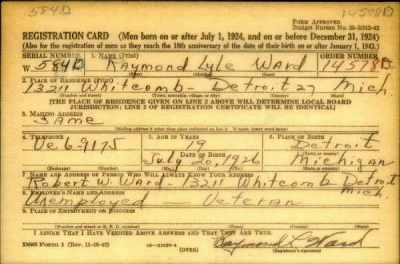 584D
14578D
Form Approved
REGISTRATION CARD (Men born on or after July 1, 1924, and on or before December 31, 1924)
(Also for the registration of men as they reach the 18th anniversary of the date of their birth on or after January 1, 1943.)
SERIAL NUMBER 1. NAME (Print) ORDER NUMBER
W 584D Raymond Lyle Ward 14578D
2. PLACE OF RESIDENCE (Print)
13211 Whitcomb - Detroit 27 Mich
(Number and street) (State)
[THE PLACE OF RESIDENCE GIVEN ON LINE 2 ABOVE WILL DETERMINE LOCAL BOARD
JURISDICTION; LINE 2 OF REGISTRATION CERTIFICATE WILL BE IDENTICAL]
3. MAILING ADDRESS
Same
4. TELEPHONE 5. AGE IN YEARS 6. PLACE OF BIRTH
Ve 6-9175 19 Detroit
DATE OF BIRTH
July 20, 1926 Michigan
7. NAME AND ADDRESS OF PERSON WHO WILL ALWAYS KNOW YOUR ADDRESS
Robert W. Ward - 13211 Whitcomb Detroit Mich.
8. EMPLOYER'S NAME AND ADDRESS
Unemployed - Veteran
9. PLACE OF EMPLOYMENT OR BUSINESS
I AFFIRM THAT I HAVE VERIFIED ABOVE ANSWERS AND THAT THEY ARE TRUE.
DSS Form 1 (Rev. 11-16-42) (OVER) Raymond L. Ward